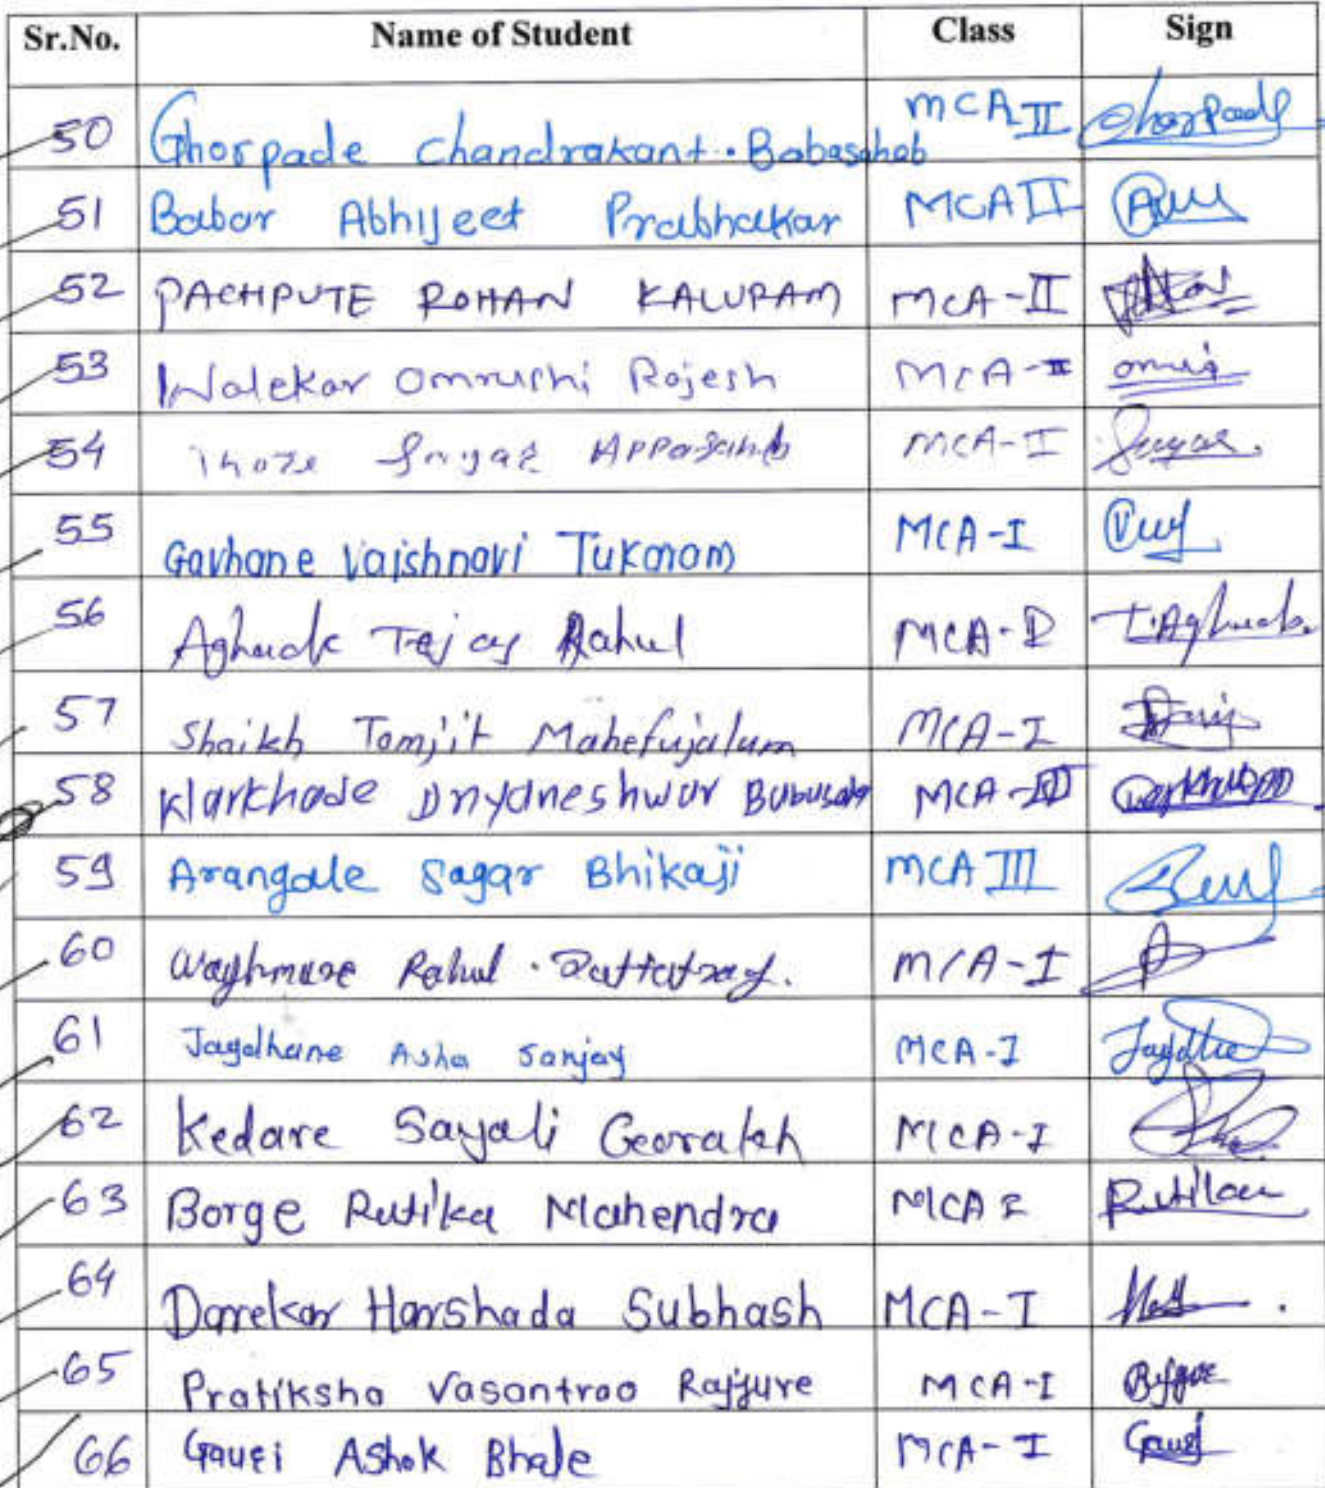 Sr.No. Name of Student Class Sign
50 Ghorpade Chandrakant. Babasaheb MCA II Ghorpade
51 Babar Abhijeet Prabhakar MCA II
52 PACHPUTE ROHAN KALURAM MCA-II
53 Walekar Omrushi Rajesh MCA-II omrushi
54 Thoze Sagar Appasaheb MCA-I Sagar.
55 Gavhane Vaishnavi Tukaram MCA-I
56 Aghade Tejas Rahul MCA-I T.Aghade
57 Shaikh Tamjit Mahefujalam MCA-I
58 Kharkhade Dnyaneshwar Babusaheb MCA-II
59 Arangale Sagar Bhikaji MCA III
60 Waghmare Rahul. Dattatray. MCA-I
61 Jagdhane Asha Sanjay MCA-I Jagdhane
62 Kedare Sayali Gorakh MCA-I
63 Borge Rutika Mahendra MCA I Rutika
64 Darekar Harshada Subhash MCA-I
65 Pratiksha Vasantrao Rajjure MCA-I
66 Gauri Ashok Bhale MCA-I Gauri